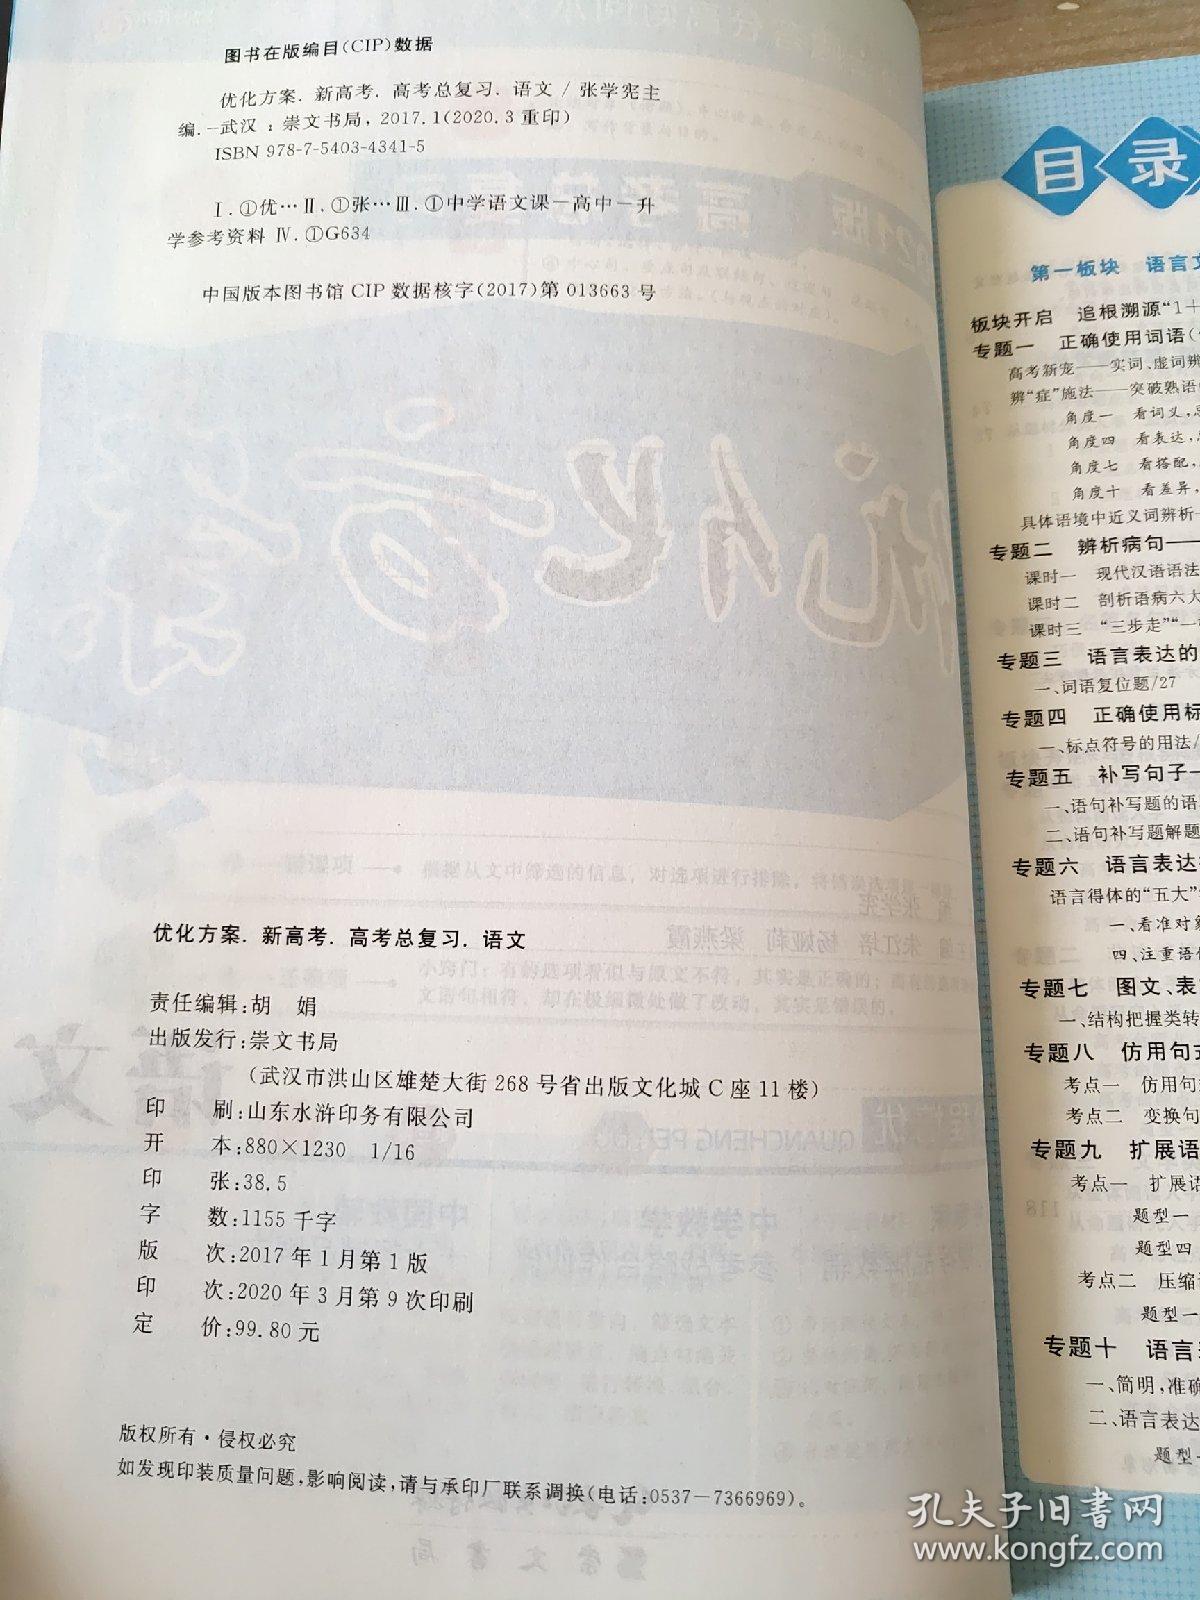 图书在版编目(CIP)数据
优化方案. 新高考. 高考总复习. 语文 / 张学宪主
编. —武汉 : 崇文书局, 2017.1(2020.3重印)
ISBN 978-7-5403-4341-5
Ⅰ. ①优… Ⅱ. ①张… Ⅲ. ①中学语文课－高中－升
学参考资料 Ⅳ. ①G634
中国版本图书馆CIP数据核字(2017)第013663号
优化方案. 新高考. 高考总复习. 语文
责任编辑:胡 娟
出版发行:崇文书局
(武汉市洪山区雄楚大街268号省出版文化城C座11楼)
印 刷:山东水浒印务有限公司
开 本:880×1230 1/16
印 张:38.5
字 数:1155千字
版 次:2017年1月第1版
印 次:2020年3月第9次印刷
定 价:99.80元
版权所有·侵权必究
如发现印装质量问题,影响阅读,请与承印厂联系调换(电话:0537－7366969)。
目录
第一板块 语言文
板块开启 追根溯源“1＋
专题一 正确使用词语(
高考新宠——实词、虚词辨
辨“症”施法——突破熟语
角度一 看词义,
角度四 看表达,
角度七 看搭配,
角度十 看差异,
具体语境中近义词辨析
专题二 辨析病句——
课时一 现代汉语语法
课时二 剖析语病六大
课时三 “三步走”“一
专题三 语言表达的
一、词语复位题/27
专题四 正确使用标
一、标点符号的用法/
专题五 补写句子
一、语句补写题的语
二、语句补写题解题
专题六 语言表达
语言得体的“五大”
一、看准对象
四、注重语
专题七 图文、表
一、结构把握类转
专题八 仿用句式
考点一 仿用句
考点二 变换句
专题九 扩展语
考点一 扩展语
题型一
题型四
考点二 压缩
题型一
专题十 语言
一、简明,准确
二、语言表达
题型
孔夫子旧书网
www.kongfz.com